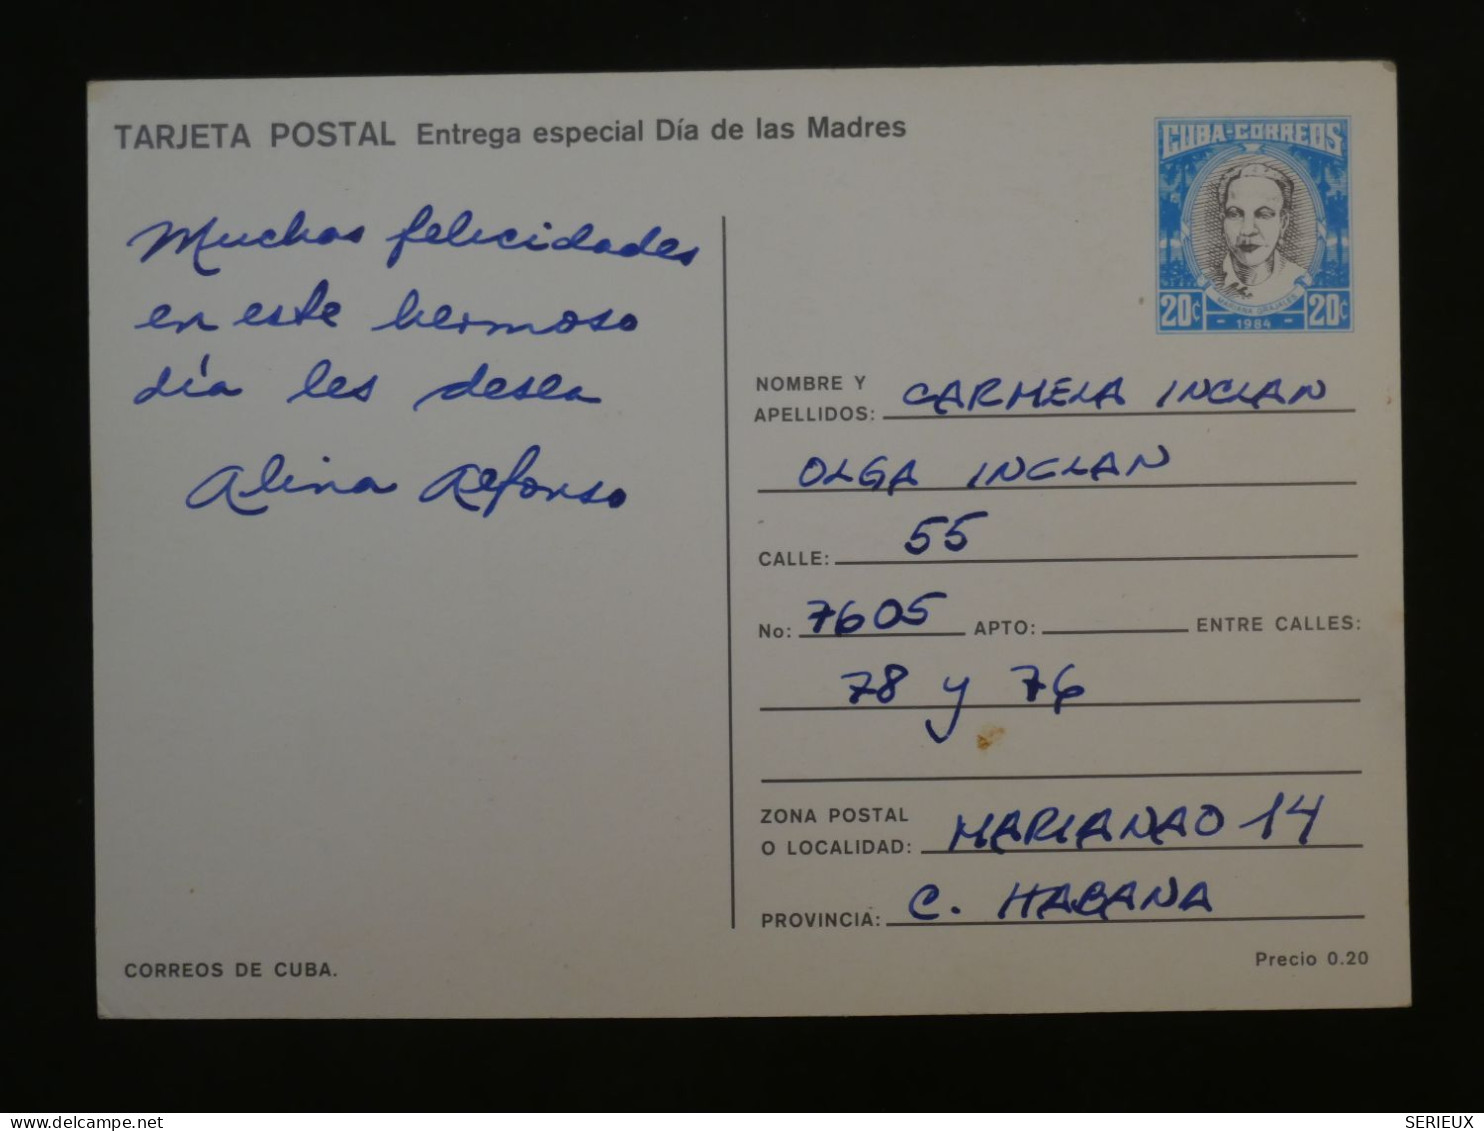 TARJETA POSTAL Entrega especial Día de las Madres
CUBA-CORREOS
MARIANA GRAJALES
20¢ - 1984 - 20¢
Muchas felicidades
en este hermoso
día les desea
Alina Alfonso
NOMBRE Y
APELLIDOS: CARMELA INCLAN
OLGA INCLAN
CALLE: 55
No: 7605 APTO: ENTRE CALLES:
78 y 76
ZONA POSTAL
O LOCALIDAD: MARIANAO 14
PROVINCIA: C. HABANA
CORREOS DE CUBA.
Precio 0.20
delcampe.net
SERIEUX